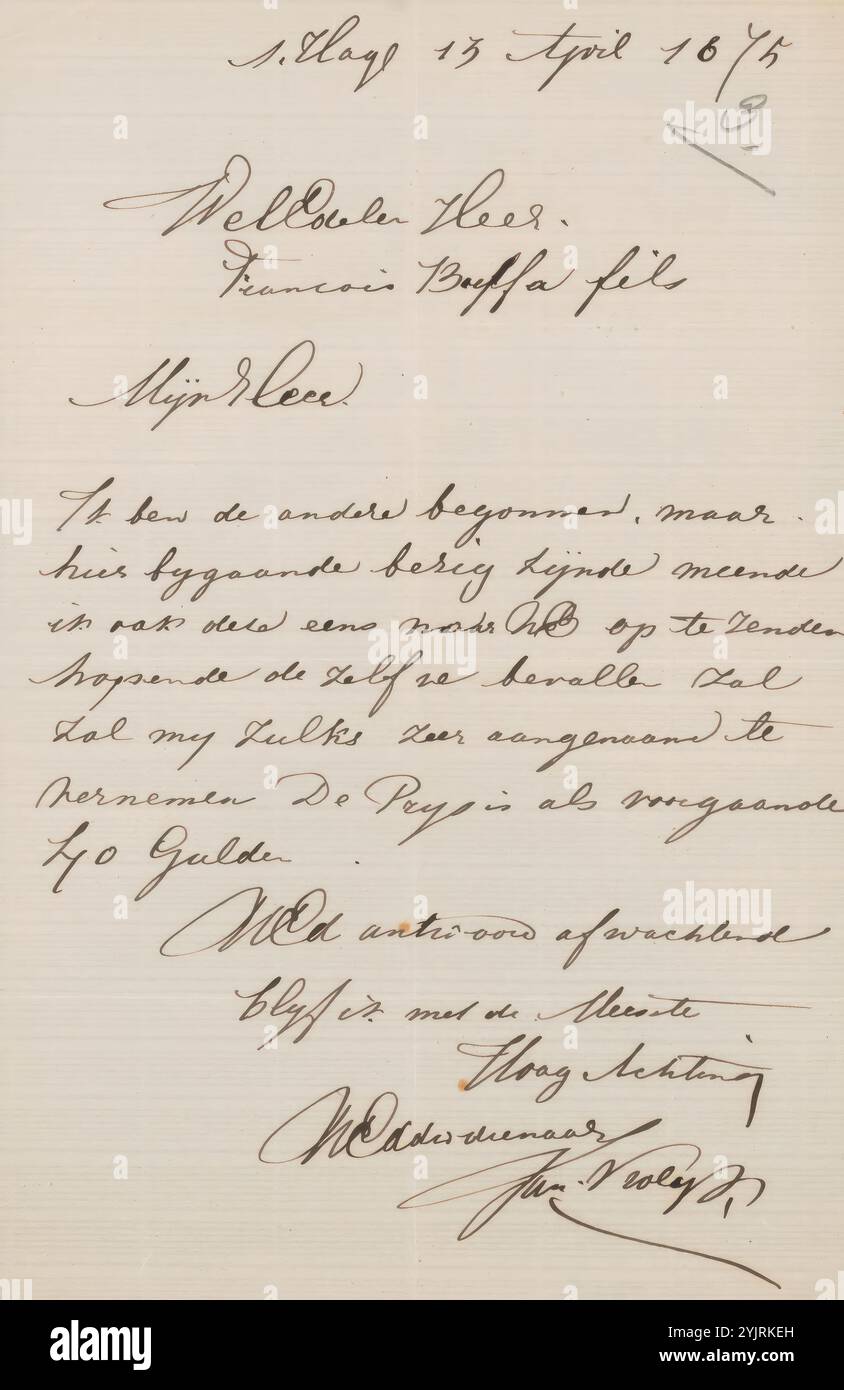 s. Hage 13 April 1875
3
WelEdelen Heer.
Francois Buffa fils
Mijn Heer.
Ik ben de andere begonnen, maar
hier bygaande bezig zijnde meende
ik ook dese eens naar UE op te zenden
hopende de zelfve bevallen zal
zal my zulks zeer aangenaam te
vernemen De Prys is als voorgaande
40 Gulden
UEd antwoord afwachtend
blyf ik met de Meeste
Hoog Achting
UEd dw dienaar
Jan Vrolyk
a
alamy
Image ID: 2YJRKEH
www.alamy.com